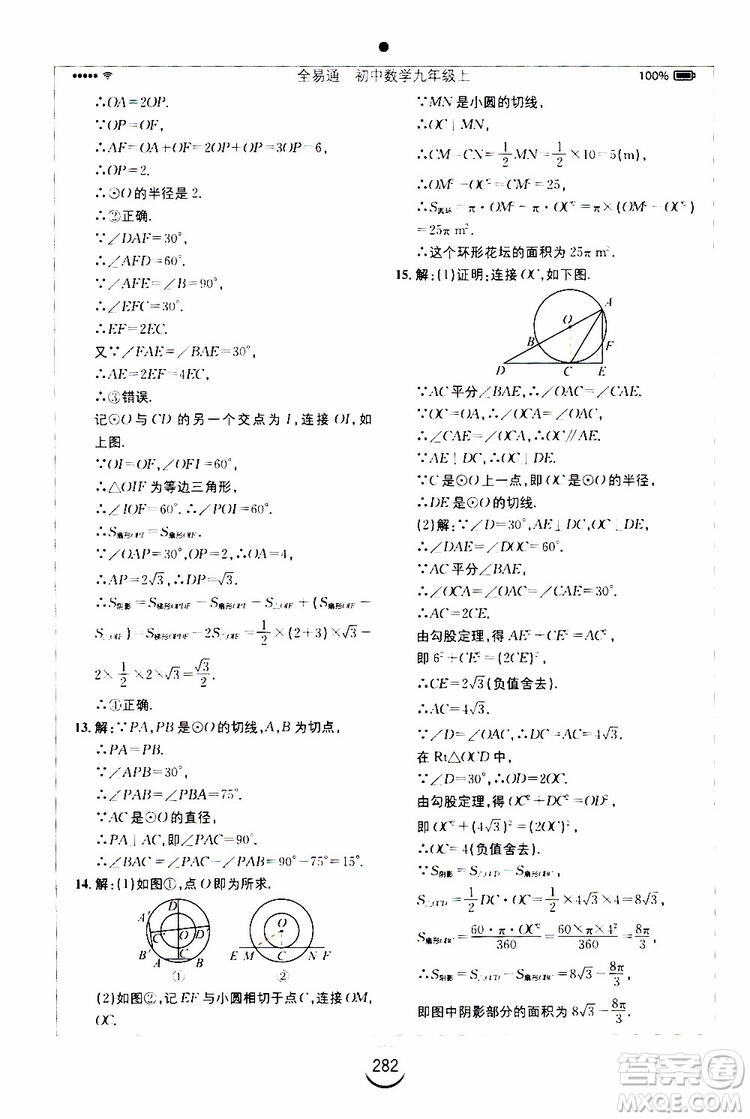 全易通 初中数学九年级上
100%
∴OA=2OP.
∵OP=OF,
∴AF=OA+OF=2OP+OP=3OP=6,
∴OP=2.
∴⊙O的半径是2.
∴②正确.
∵∠DAF=30°,
∴∠AFD=60°.
∵∠AFE=∠B=90°,
∴∠EFC=30°.
∴EF=2EC.
又∵∠FAE=∠BAE=30°,
∴AE=2EF=4EC,
∴③错误.
记⊙O与CD的另一个交点为I,连接OI,如
上图.
∵OI=OF,∠OFI=60°,
∴△OIF为等边三角形,
∴∠IOF=60°. ∴∠POI=60°.
∴S扇形OPI=S扇形OIF.
∵∠OAP=30°,OP=2,
∴AP=2√3,∴DF=√3.
∴S阴影=S梯形OPDF-S扇形OPI-S△OIF+(S扇形OIF-
S△OIF)=S梯形OPDF-2S△OIF=1/2×(2+3)×√3-
2×1/2×2×√3=√3/2.
∴①正确.
13.解:∵PA,PB是⊙O的切线,A,B为切点,
∴PA=PB.
∵∠APB=30°,
∴∠PAB=∠PBA=75°.
∵AC是⊙O的直径,
∴PA⊥AC,即∠PAC=90°.
∴∠BAC=∠PAC-∠PAB=90°-75°=15°.
14.解:(1)如图①,点O即为所求.
A′ D A C′ O D′ B′ C B
①
O E M C N F
②
(2)如图②,记EF与小圆相切于点C,连接OM,
OC.
∵MN是小圆的切线,
∴OC⊥MN,
∴CM=CN=1/2MN=1/2×10=5(m),
∴OM²-OC²=CM²=25,
∴S圆环=π·OM²-π·OC²=π×(OM²-OC²)=
25π m².
∴这个环形花坛的面积为25π m².
15.解:(1)证明:连接OC,如下图.
A O B F D C E
∵AC平分∠BAE,∴∠OAC=∠CAE.
∵OC=OA,∴∠OCA=∠OAC.
∴∠CAE=∠OCA,∴OC∥AE.
∵AE⊥DC,∴OC⊥DE.
∵C是⊙O上一点,即OC是⊙O的半径,
∴DE是⊙O的切线.
(2)解:∵∠D=30°,AE⊥DE,OC⊥DE,
∴∠DAE=∠DOC=60°.
∵AC平分∠BAE,
∴∠OCA=∠OAC=∠CAE=30°.
∴AC=2CE.
由勾股定理,得AE²+CE²=AC²,
即6²+CE²=(2CE)².
∴CE=2√3(负值舍去).
∴AC=4√3.
∵∠D=∠OAC,∴DC=AC=4√3.
在Rt△OCD中,
∵∠D=30°,∴OD=2OC.
由勾股定理,得OC²+DC²=OD²,
即OC²+(4√3)²=(2OC)².
∴OC=4(负值舍去).
∵S阴影=S△OCD-S扇形OBC,
S△OCD=1/2DC·OC=1/2×4√3×4=8√3,
S扇形OBC=60·π·OC²/360=60×π×4²/360=8π/3,
∴S阴影=S△OCD-S扇形OBC=8√3-8π/3,
即图中阴影部分的面积为8√3-8π/3.
282
答案圈
MXQE.COM